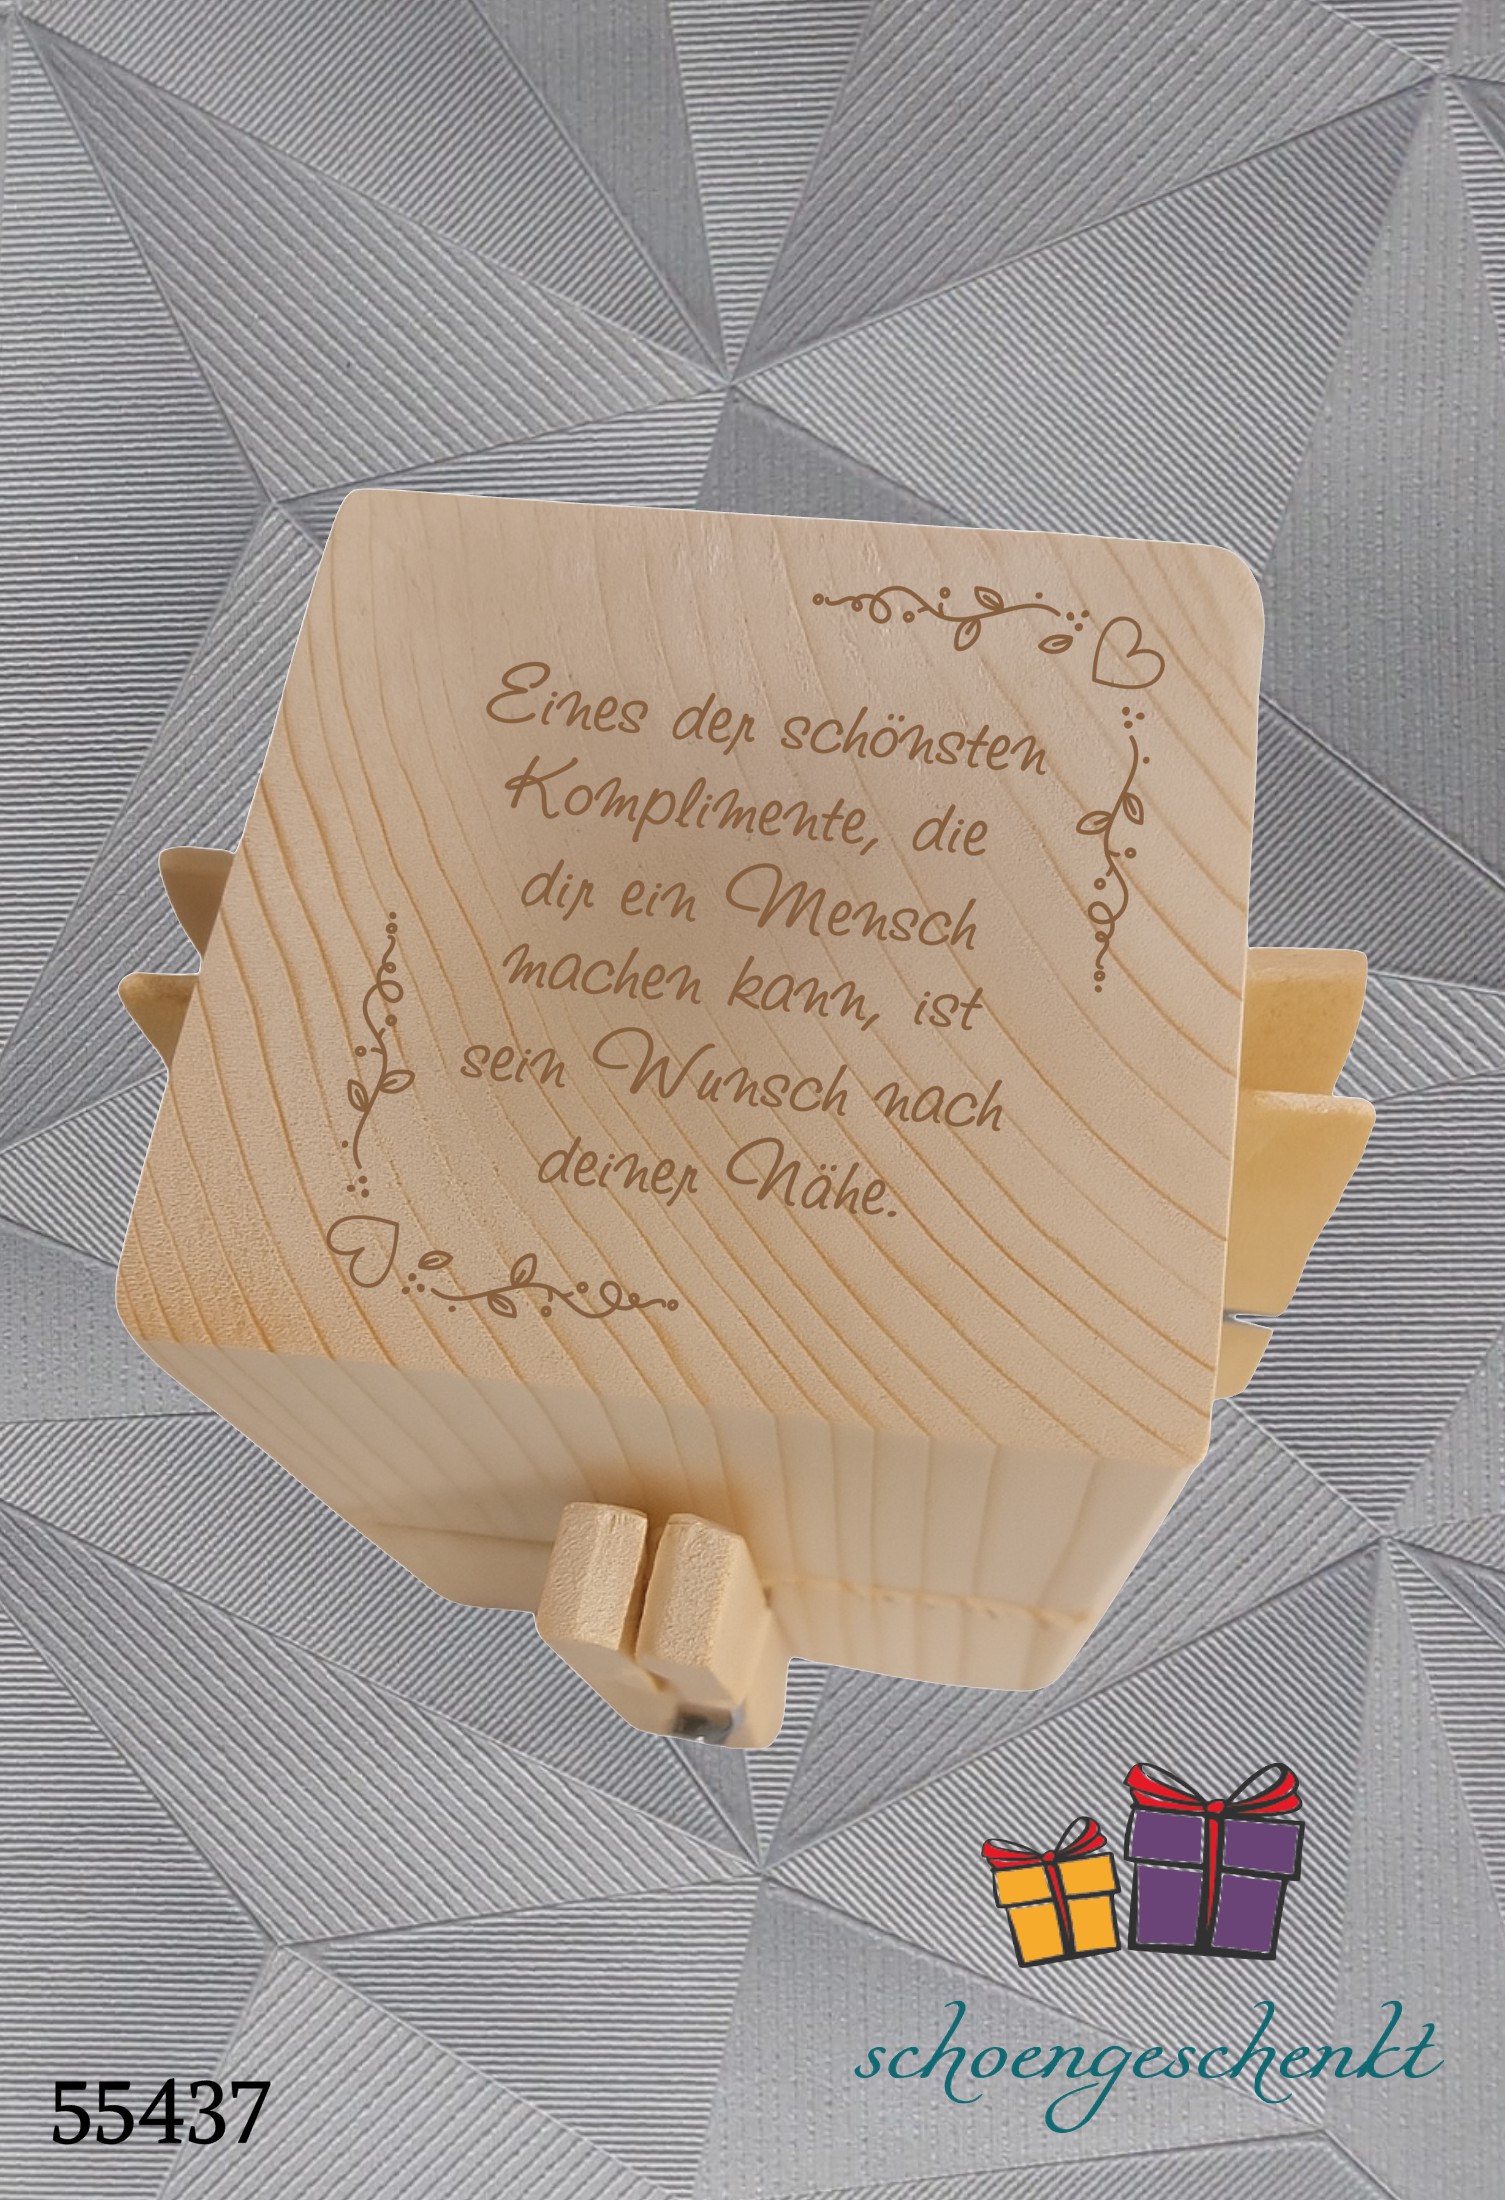 Eines der schönsten
Komplimente, die
dir ein Mensch
machen kann, ist
sein Wunsch nach
deiner Nähe.
schoengeschenkt
55437